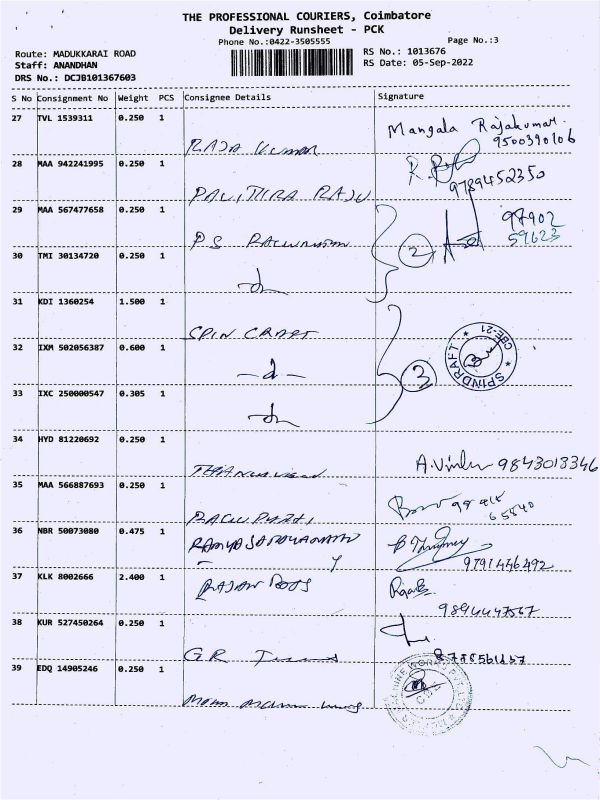 THE PROFESSIONAL COURIERS, Coimbatore
Delivery Runsheet - PCK
Phone No.:0422-3505555
Page No.:3
Route: MADUKKARAI ROAD
RS No.: 1013676
Staff: ANANDHAN
RS Date: 05-Sep-2022
DRS No.: DCJB101367603
S No Consignment No Weight PCS Consignee Details Signature
27 TVL 1539311 0.250 1
RAJA KUMAR
Mangala Rajakumar.
9500390106
28 MAA 942241995 0.250 1
PAVITHRA RAJU
9789452350
29 MAA 567477658 0.250 1
PS
2
97902
59623
30 TMI 30134720 0.250 1
31 KDI 1360254 1.500 1
SPIN CRAFT
32 IXM 502056387 0.600 1
3
SPINDRAFT CBE-21
33 IXC 250000547 0.305 1
34 HYD 81220692 0.250 1
9843018346
35 MAA 566887693 0.250 1
36 NBR 50073080 0.475 1
9791456492
37 KLK 8002666 2.400 1
RAJAN
9894447567
38 KUR 527450264 0.250 1
GR
39 EDQ 14905246 0.250 1